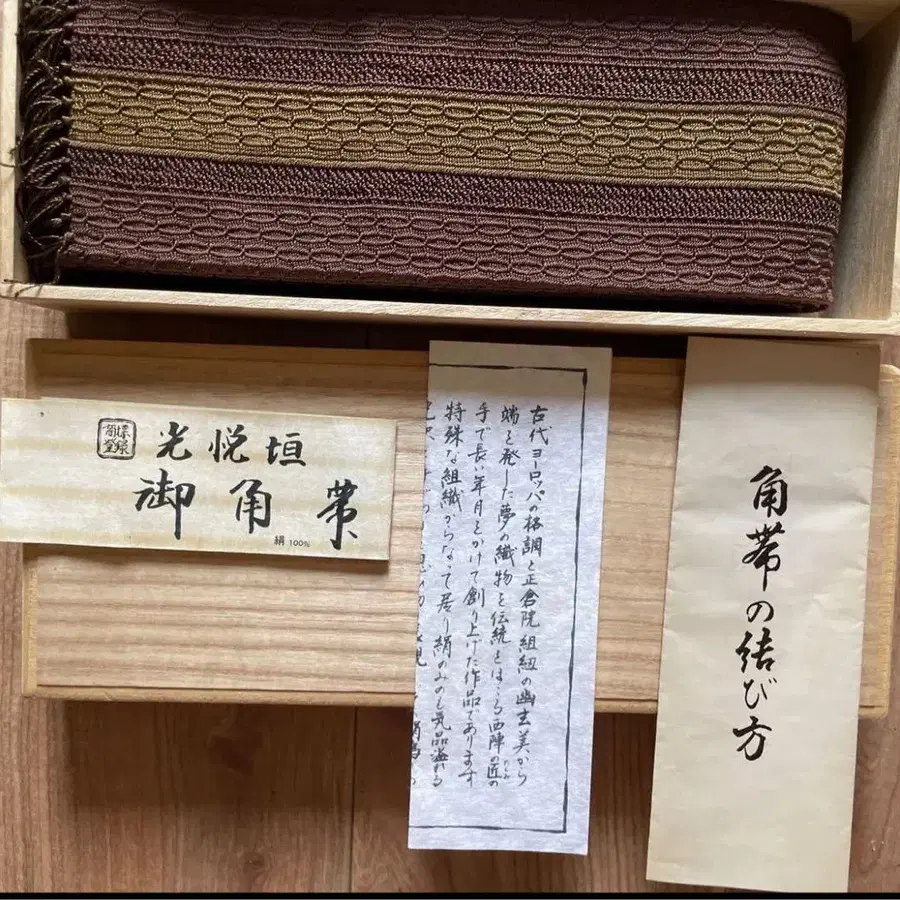 商標登録
光悦垣
御角帯
絹 100%
古代ヨーロッパの格調と正倉院組紐の幽玄美から
端を発した夢の織物を伝統をほこる西陣の匠の
たくみ
手で長い年月とかけて創り上げた作品であります
特殊な組織からなって居り絹のみのもつ気品溢れる
角帯の結び方